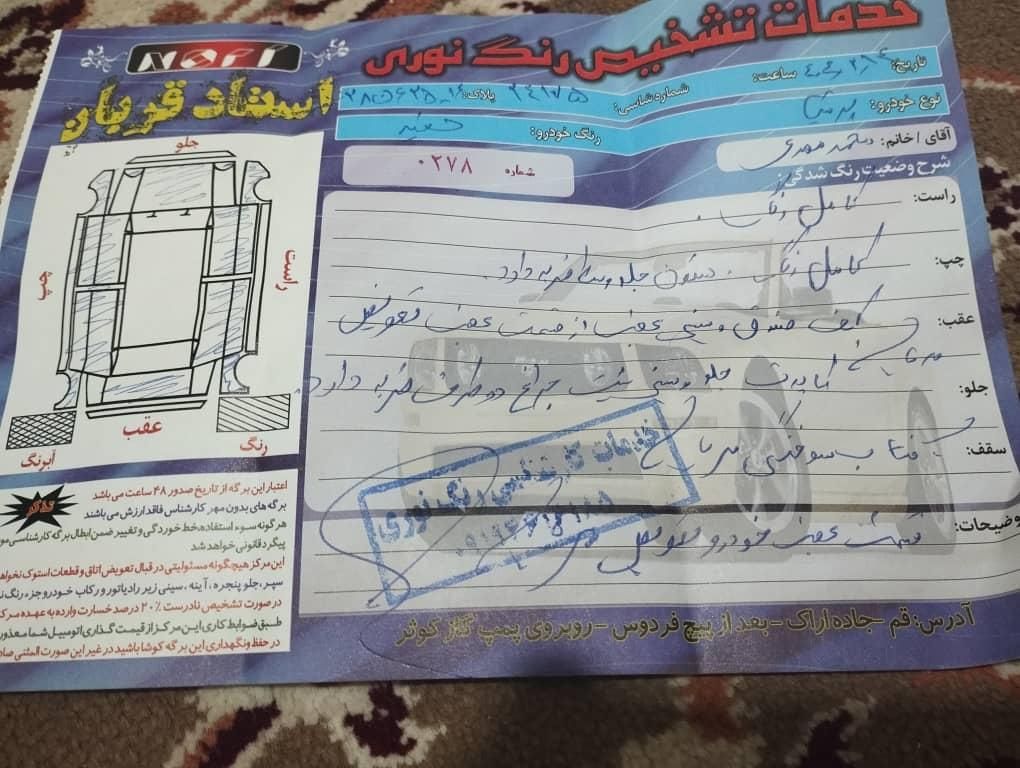 خدمات تشخیص رنگ نوری
NORI
استاد قربان
تاریخ:
ساعت:
نوع خودرو:
شماره شاسی: ۲۴۱۷۵
پلاک:
رنگ خودرو: سفید
آقای / خانم: محمد مهدی
شماره ۰۲۷۸
شرح وضعیت رنگ شدگی:
راست: کامل رنگ.
چپ: کامل رنگ. ستون جلو وسط ضربه دارد.
عقب: کف صندوق و سینی عقب از قسمت عقب تعویض
جلو: جلو و سینی چراغ دو طرف ضربه دارد.
سقف: آفتاب سوختگی
توضیحات: قسمت عقب خودرو تعویض
خدمات کارشناسی رنگ نوری
آدرس: قم - جاده اراک - بعد از پیچ فردوس - روبروی پمپ گاز کوثر
جلو
چپ
راست
عقب
آبرنگ
رنگ
تذکر
اعتبار این برگه از تاریخ صدور ۴۸ ساعت می باشد
برگه های بدون مهر کارشناس فاقد ارزش می باشند
هرگونه سوء استفاده، خط خوردگی و تغییر ضمن ابطال برگه کارشناسی
پیگرد قانونی خواهد شد
این مرکز هیچگونه مسئولیتی در قبال تعویض اتاق و قطعات استوک
سپر، جلو پنجره، آینه، سینی زیر رادیاتور و رکاب خودرو جزء رنگ
در صورت تشخیص نادرست ۲۰٪ درصد خسارت وارده به عهده
طبق ضوابط کاری این مرکز از قیمت گذاری اتومبیل شما معذور
در حفظ و نگهداری این برگه کوشا باشید در غیر این صورت المثنی